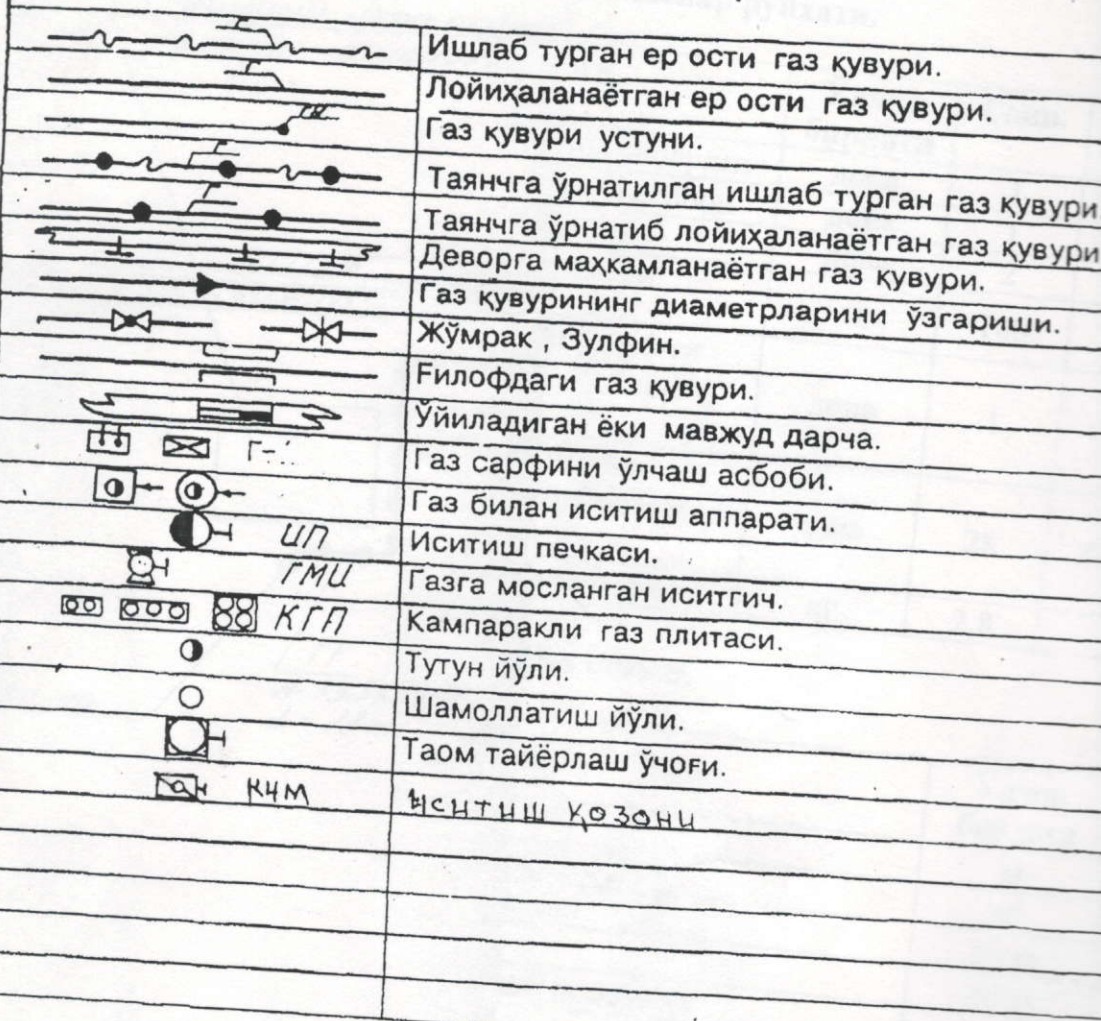 Ишлаб турган ер ости газ қувури.
Лойиҳаланаётган ер ости газ қувури.
Газ қувури устуни.
Таянчга ўрнатилган ишлаб турган газ қувури
Таянчга ўрнатиб лойиҳаланаётган газ қувури
Деворга маҳкамланаётган газ қувури.
Газ қувурининг диаметрларини ўзгариши.
Жўмрак , Зулфин.
Ғилофдаги газ қувури.
Ўйиладиган ёки мавжуд дарча.
Г- Газ сарфини ўлчаш асбоби.
Газ билан иситиш аппарати.
ИП Иситиш печкаси.
ГМИ Газга мосланган иситгич.
КГП Кампаракли газ плитаси.
Тутун йўли.
Шамоллатиш йўли.
Таом тайёрлаш ўчоғи.
КЧМ Иситиш қозони